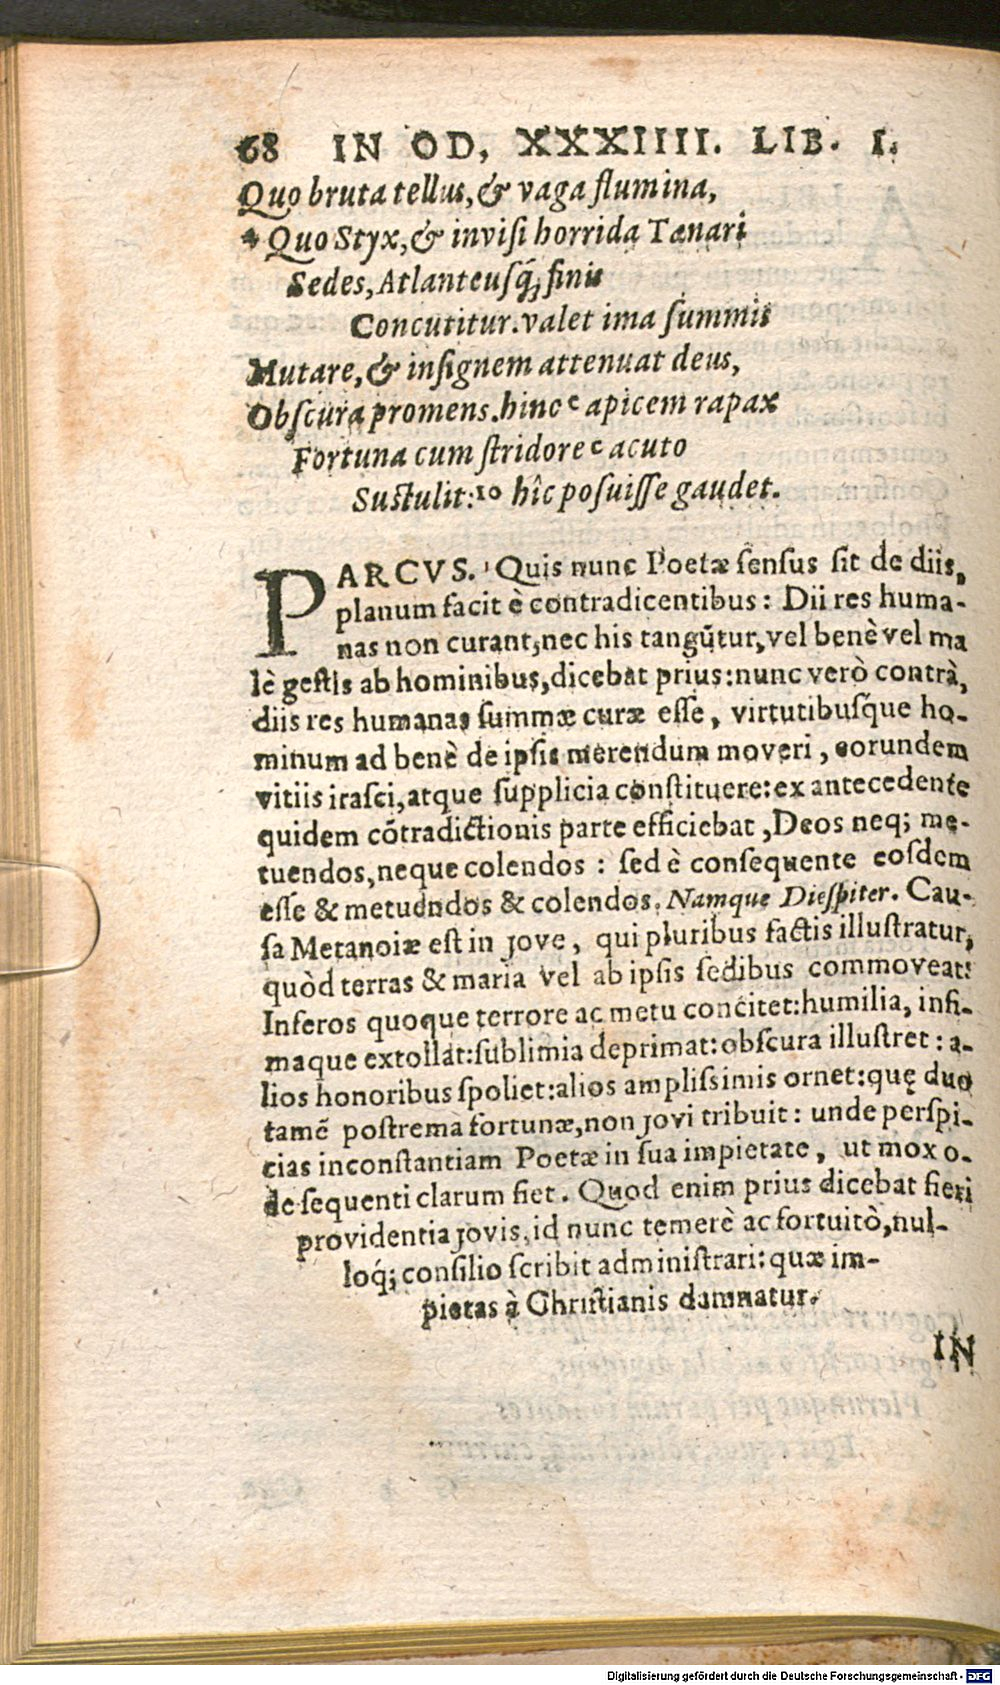 68 IN OD, XXXIIII. LIB. I.
Quo bruta tellus, & vaga flumina,
* Quo Styx, & invisi horrida Tænari
Sedes, Atlanteusq́; finis
Concutitur. valet ima summis
Mutare, & insignem attenuat deus,
Obscura promens. hinc c apicem rapax
Fortuna cum stridore c acuto
Sustulit: 10 hîc posuisse gaudet.
PARCVS. 1 Quis nunc Poetæ sensus sit de diis,
planum facit è contradicentibus: Dii res huma-
nas non curant, nec his tangūtur, vel benè vel ma
lè gestis ab hominibus, dicebat prius: nunc verò contrà,
diis res humanas summæ curæ esse, virtutibusq́ue ho-
minum ad benè de ipsis merendum moveri, eorundem
vitiis irasci, atque supplicia constituere: ex antecedente
quidem cōtradictionis parte efficiebat, Deos neq; me-
tuendos, neque colendos: sed è consequente eosdem
esse & metuendos & colendos. Namque Diespiter. Cau-
sa Metanoiæ est in Jove, qui pluribus factis illustratur,
quòd terras & maria vel ab ipsis sedibus commoveat:
Inferos quoque terrore ac metu concitet: humilia, infi-
maque extollat: sublimia deprimat: obscura illustret: a-
lios honoribus spoliet: alios amplissimis ornet: quę duo
tamē postrema fortunæ, non Jovi tribuit: unde perspi-
cias inconstantiam Poetæ in sua impietate, ut mox o-
de sequenti clarum fiet. Quod enim prius dicebat fieri
providentia Jovis, id nunc temerè ac fortuitò, nul-
loq́; consilio scribit administrari: quæ im-
pietas à Christianis damnatur.
IN
Digitalisierung gefördert durch die Deutsche Forschungsgemeinschaft - DFG